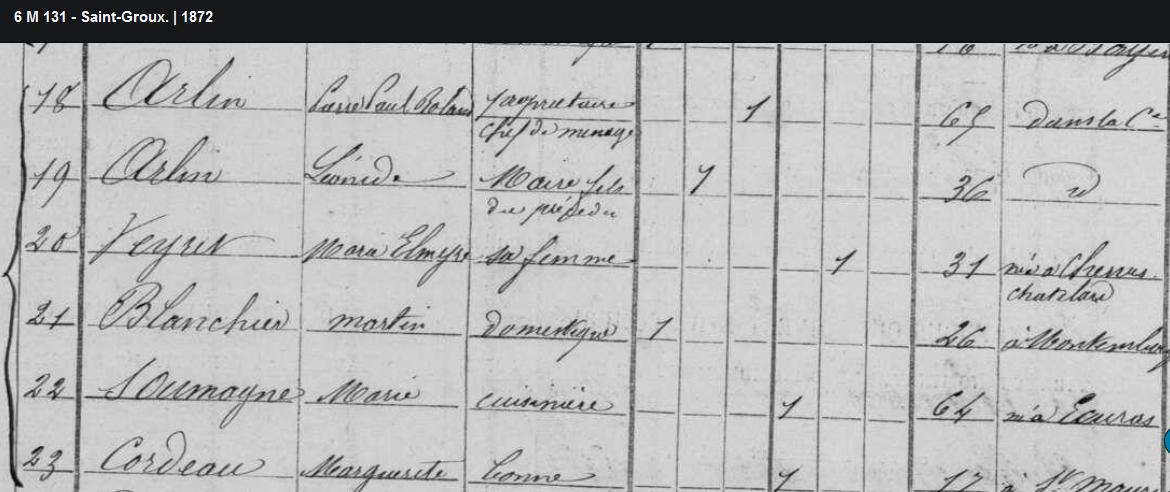 6 M 131 - Saint-Groux. | 1872
18 Arlin Pierre Paul Roland propriétaire 1 65 dans la Cne
chef de ménage
19 Arlin Léonide Maire fils 1 36 id
du précédent
20 Veyret Marie Elmyre sa femme 1 31 née à
21 Blanchier martin domestique 1 26 à Montembœuf
22 Soumagne Marie cuisinière 1 64 née à Ecuras
23 Cordeau Marguerite bonne 1 17 à St